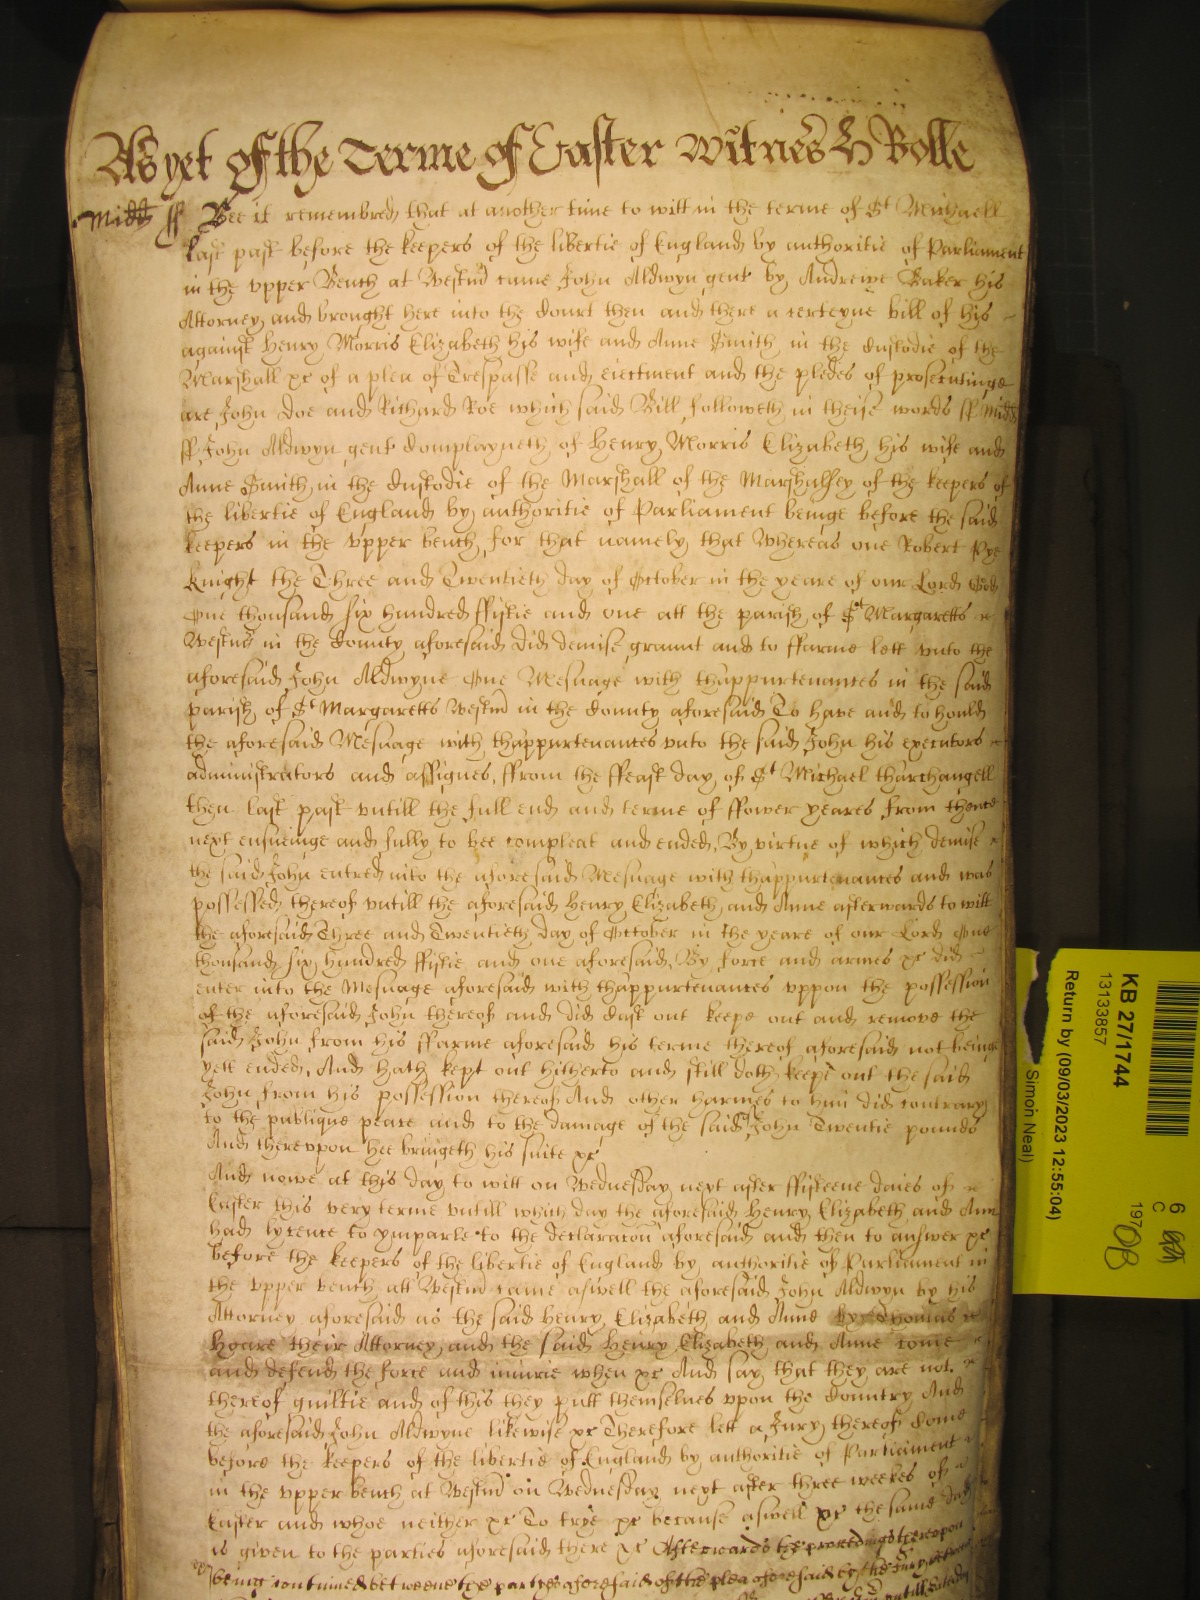 As yet of the Terme of Easter Witnes H Rolle
Midd ff Bee it remembred that at another time to witt in the terme of St Michaell
last past before the keepers of the libertie of England by authoritie of Parliament
in the vpper Bench at Westm came John Aldwyn gent by Andrewe Baker his
Attorney and brought here into the Court then and there a certeyne bill of his
against Henry Morris Elizabeth his wife and Anne Smith in the Custodie of the
Marshall xc of a plea of Trespasse and eiectment and the pledes of prosecutinge
are John Doe and Richard Roe which said Bill followeth in theise words ff Midd
ff John Aldwyn gent Complayneth of Henry Morris Elizabeth his wife and
Anne Smith in the Custodie of the Marshall of the Marshalsey of the keepers of
the libertie of England by authoritie of Parliament beinge before the said
keepers in the vpper bench for that namely that Whereas one Robert Pye
knight the Three and Twentieth day of October in the yeare of our Lord God
One thousand six hundred ffiftie and one att the parish of St Margaretts
Westm in the County aforesaid did demise graunt and to ffarme lett vnto the
aforesaid John Aldwyne One Mesuage with thappurtenances in the said
parish of St Margaretts Westm in the County aforesaid To have and to hould
the aforesaid Mesuage with thappurtenances vnto the said John his executors
administrators and assignes, ffrom the ffeast day of St Michael tharchangell
then last past vntill the full end and terme of ffower yeares from thence
next ensueinge and fully to bee compleat and ended, By virtue of which demise
the said John entred into the aforesaid Mesuage with thappurtenances and was
possessed thereof vntill the aforesaid Henry Elizabeth and Anne afterwards to witt
the aforesaid Three and Twentieth day of October in the yeare of our Lord One
thousand six hundred ffiftie and one aforesaid, By force and armes xc did
enter into the Mesuage aforesaid with thappurtenances vppon the possession
of the aforesaid John thereof and did Cast out keepe out and remove the
said John from his ffarme aforesaid his terme thereof aforesaid not beinge
yett ended, And hath kept out hitherto and still doth keepe out the said
John from his possession thereof And other harmes to him did contrary
to the publique peace and to the damage of the said John Twentie pounds
And therevpon hee bringeth his suite xc
And nowe at this day to witt on Wednesday next after ffifteene daies of
Easter this very terme vntill which day the aforesaid Henry Elizabeth and Ann
had lycence to ymparle to the declaracon aforesaid and then to answer xc
before the keepers of the libertie of England by authoritie of Parliament in
the vpper bench att Westm came aswell the aforesaid John Aldwyn by his
Attorney aforesaid as the said Henry Elizabeth and Anne by Thomas
Hoare their Attorney and the said Henry Elizabeth and Anne come
and defend the force and iniurie when xc And say that they are not
thereof guiltie and of this they putt themselues vpon the Countrey And
the aforesaid John Aldwyne likewise xc Therefore lett a Jury thereof Come
before the keepers of the libertie of England by authoritie of Parliament
in the vpper bench at Westm on Wednesday next after three weekes of
Easter and whoe neither xc To trye xc because aswell xc the same day
is given to the parties aforesaid there xc Afterwards the proceedings therevpon
being continued betweene the parties aforesaid of the plea aforesaid by the Jury
KB 27/1744
13133857
Return by (09/03/2023 12:55:04)
Simon Neal)
6
C
197